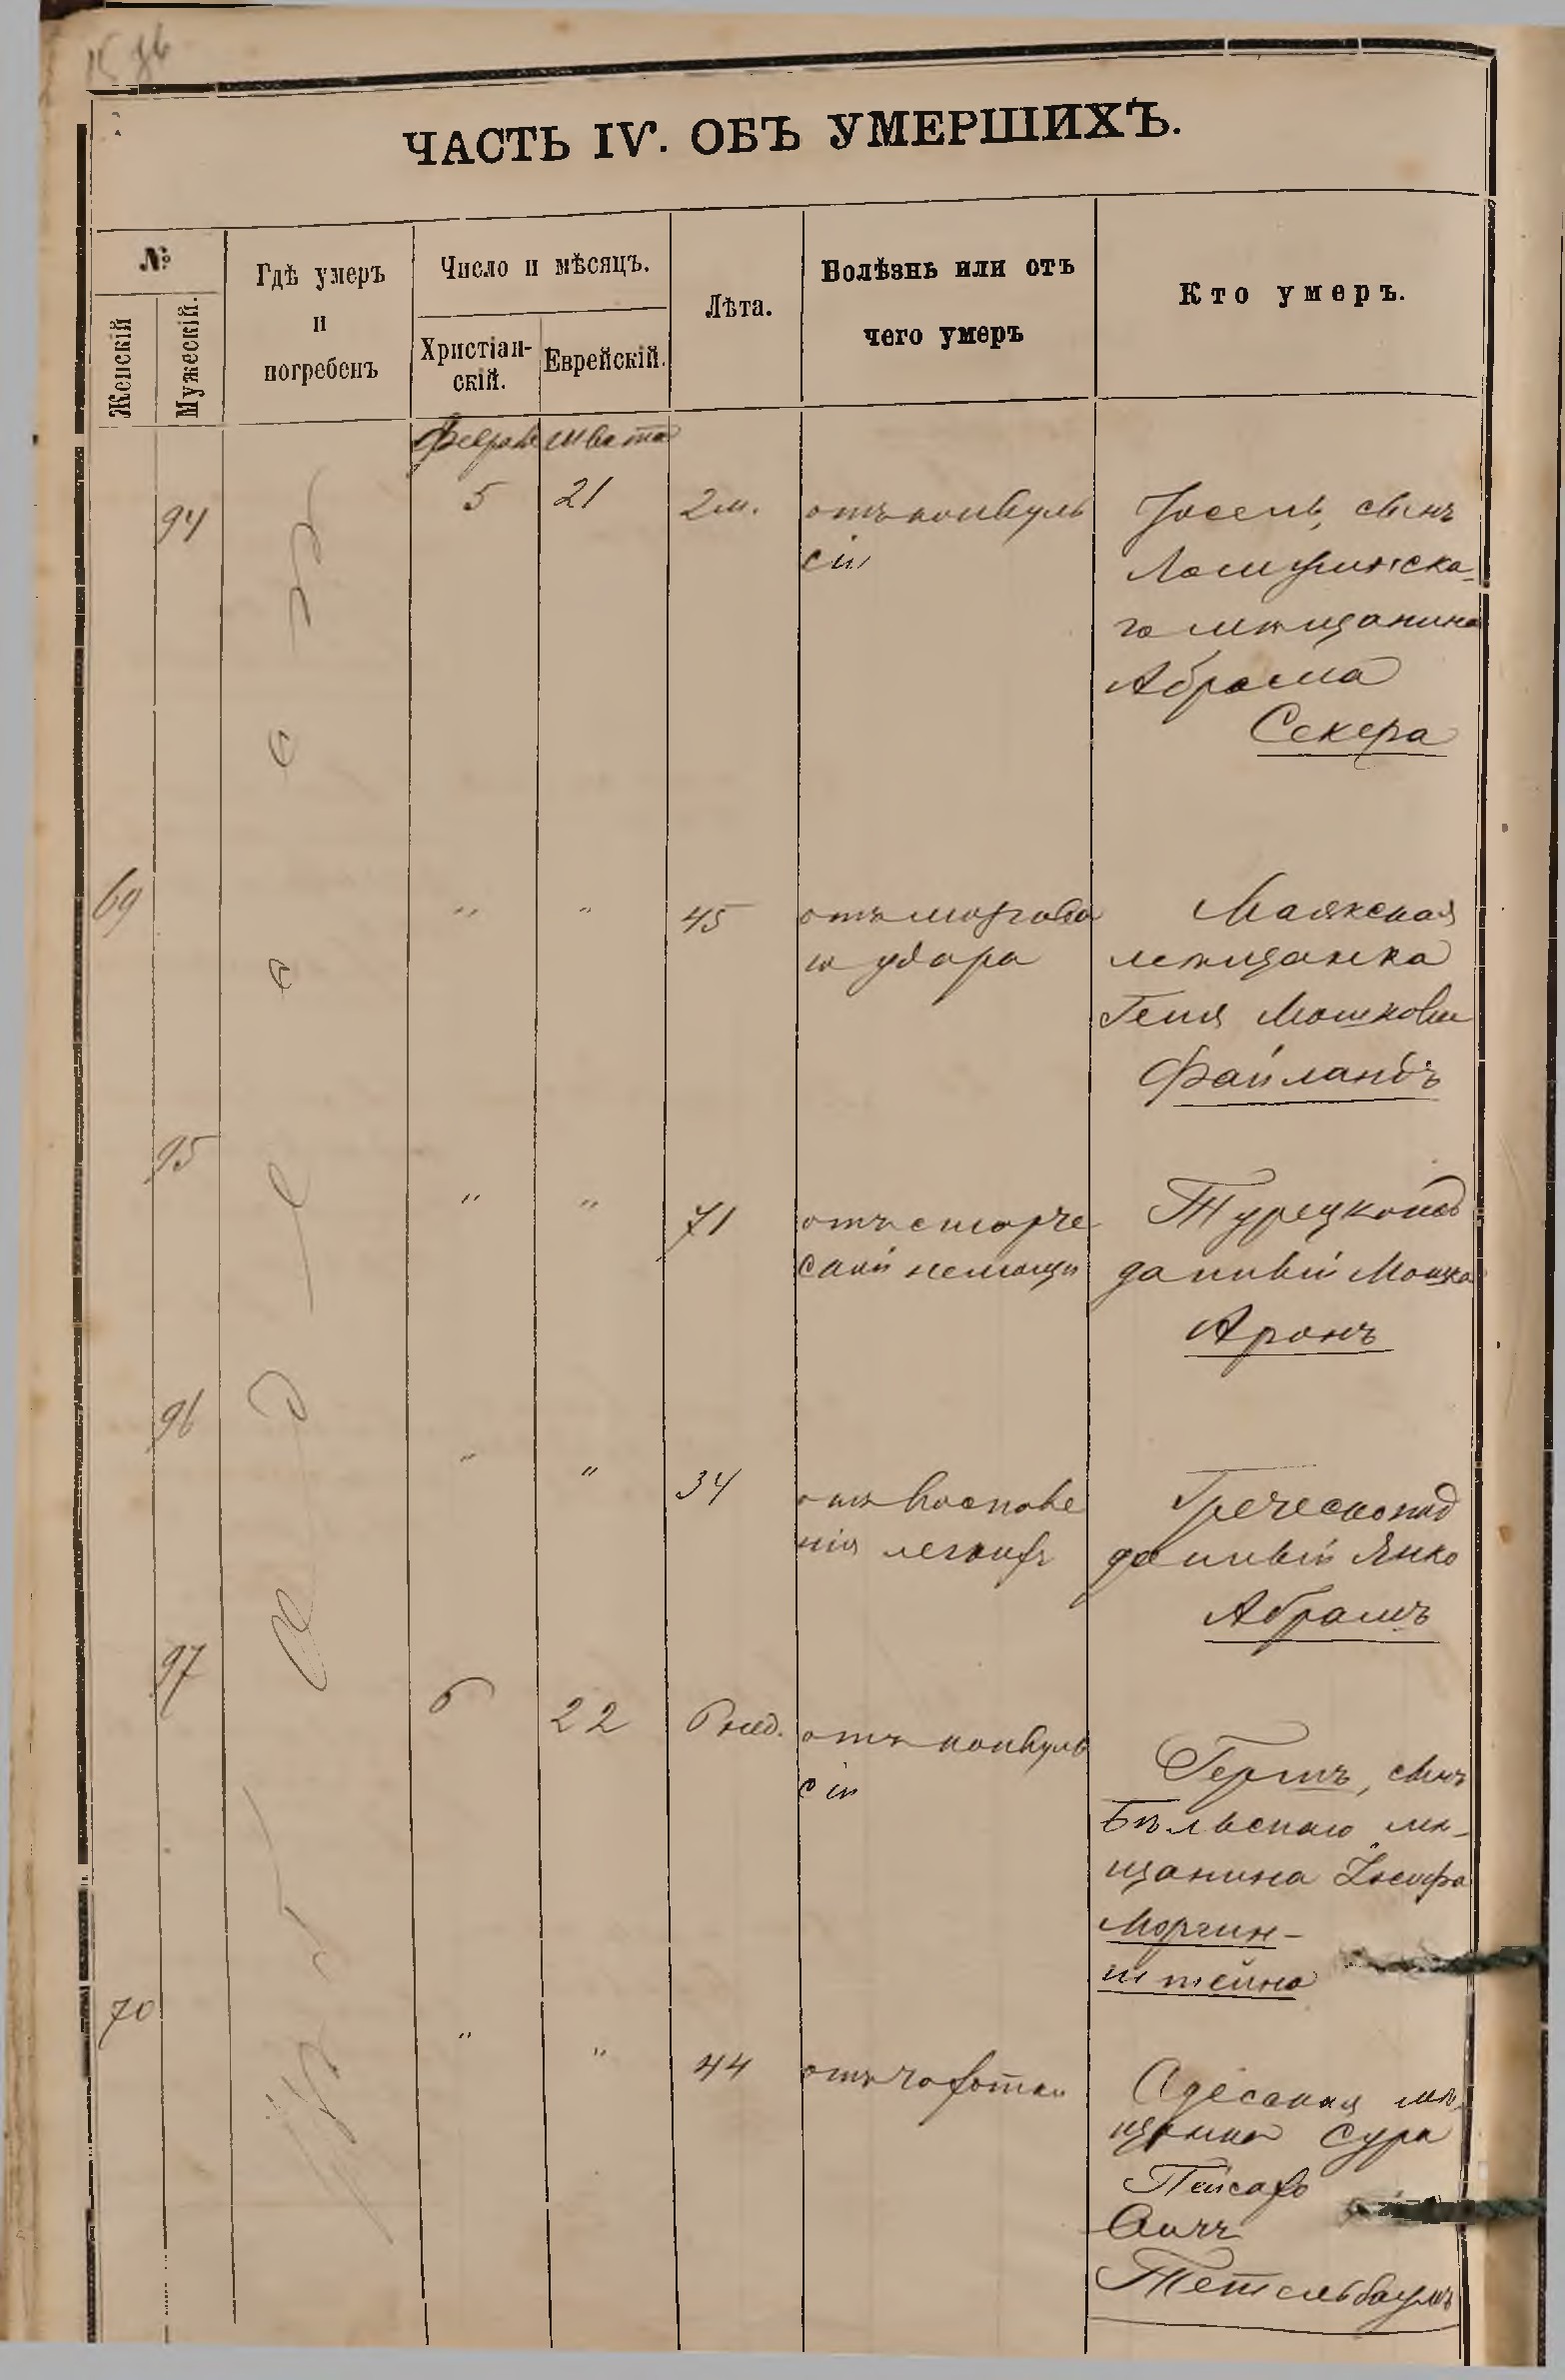 ЧАСТЬ IV. ОБЪ УМЕРШИХЪ.
№
Женскій
Мужескій.
Гдѣ умеръ
и
погребенъ
Число и мѣсяцъ.
Христіан-
скій.
Еврейскій.
Лѣта.
Болѣзнь или отъ
чего умеръ
Кто умеръ.
Февраля Швата
94
5
21
2 м.
отъ конвуль
сіи
Іосель, сынъ
го мѣщанина
Абрама
Секера
69
"
"
45
отъ
удара
Маякская
мѣщанка
Геня Мошкова
Файландъ
95
"
"
71
отъ старче
ской немощи
Турецкопод
данный Мошка
Аронъ
96
"
"
34
отъ воспале
нія легкихъ
Греческопод
данный Янко
Абрамъ
97
6
22
6 нед.
отъ конвуль
сіи
Гершъ, сынъ
Бѣльскаго мѣ-
щанина Іосифа
Моргин-
штейна
70
"
"
44
отъ чахотки
Одесская мѣ-
щанка Сура
Тетельбаумъ
въ г. Одессѣ